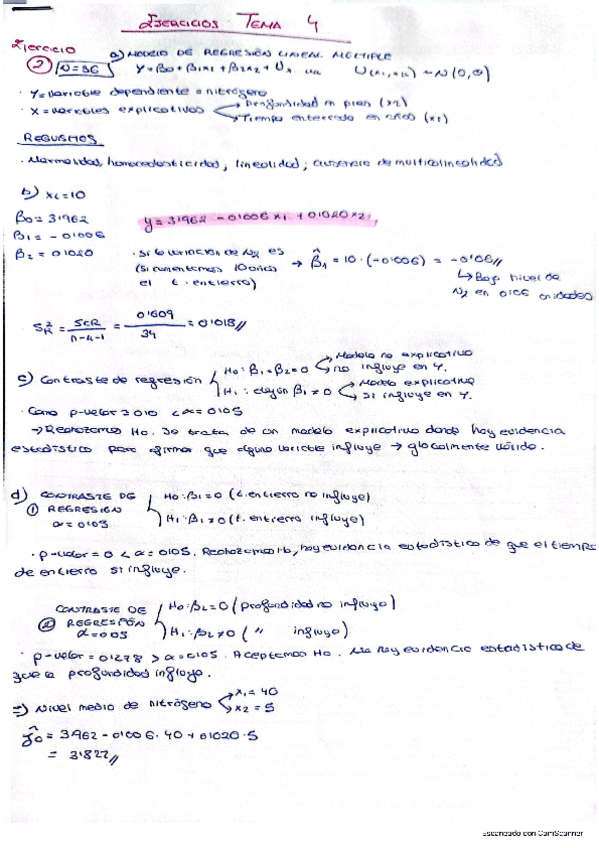 EJERCICIOS TEMA 4
Ejercicio
2 N=36 a) MODELO DE REGRESIÓN LINEAL MÚLTIPLE
Y=β0+β1x1+β2x2+U
· Y=variable dependiente = nitrógeno
· X=variables explicativas Profundidad en pies (x2)
Tiempo enterrado en años (x1)
REQUISITOS
· Normalidad, homocedasticidad, linealidad, ausencia de multicolinealidad
b) x1=10
β0=3'962
β1=-0'006
β2=0'020
y=3'962-0'006x1+0'020x2
(si aumentamos 10 años
el t. entierro)
→ β̂1=10·(-0'006) = -0'06//
↳ Baja nivel de
N2 en 0'06 unidades
= 0'609 / 34 = 0'018//
c) Contraste de regresión H0: β1=β2=0 Modelo no explicativo
no influye en Y.
H1: algún β1≠0 Modelo explicativo
Sí influye en Y.
· Como p-valor < α=0'05
→ Rechazamos H0. Se trata de un modelo explicativo donde hay evidencia
estadística para afirmar que alguna variable influye → globalmente válido.
d) CONTRASTE DE
1 REGRESIÓN
α=0'05
H0:β1=0 (t. entierro no influye)
H1:β1≠0 (t. entierro influye)
· p-valor=0 < α=0'05. Rechazamos H0, hay evidencia estadística de que el tiempo
de entierro si influye.
CONTRASTE DE
2 REGRESIÓN
α=0'05
H0:β2=0 (profundidad no influye)
H1:β2≠0 ( " influye)
· p-valor=0'278 > α=0'05. Aceptamos H0. No hay evidencia estadística de
que la profundidad influya.
Nivel medio de nitrógeno x1=40
x2=5
ŷ0=3'962-0'006·40+0'020·5
= 3'822//
Escaneado con CamScanner